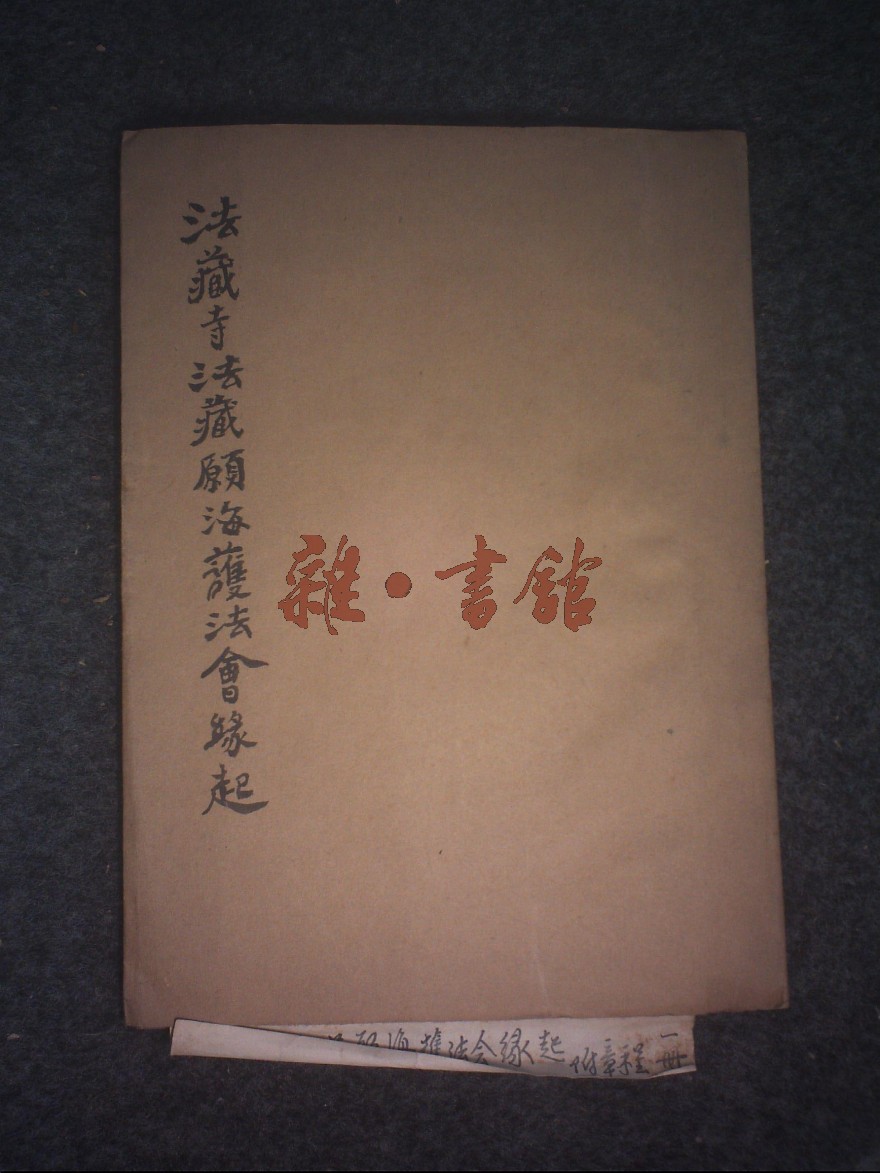 法藏寺法藏願海護法會緣起
雜·書館
法会缘起 附章程 一冊